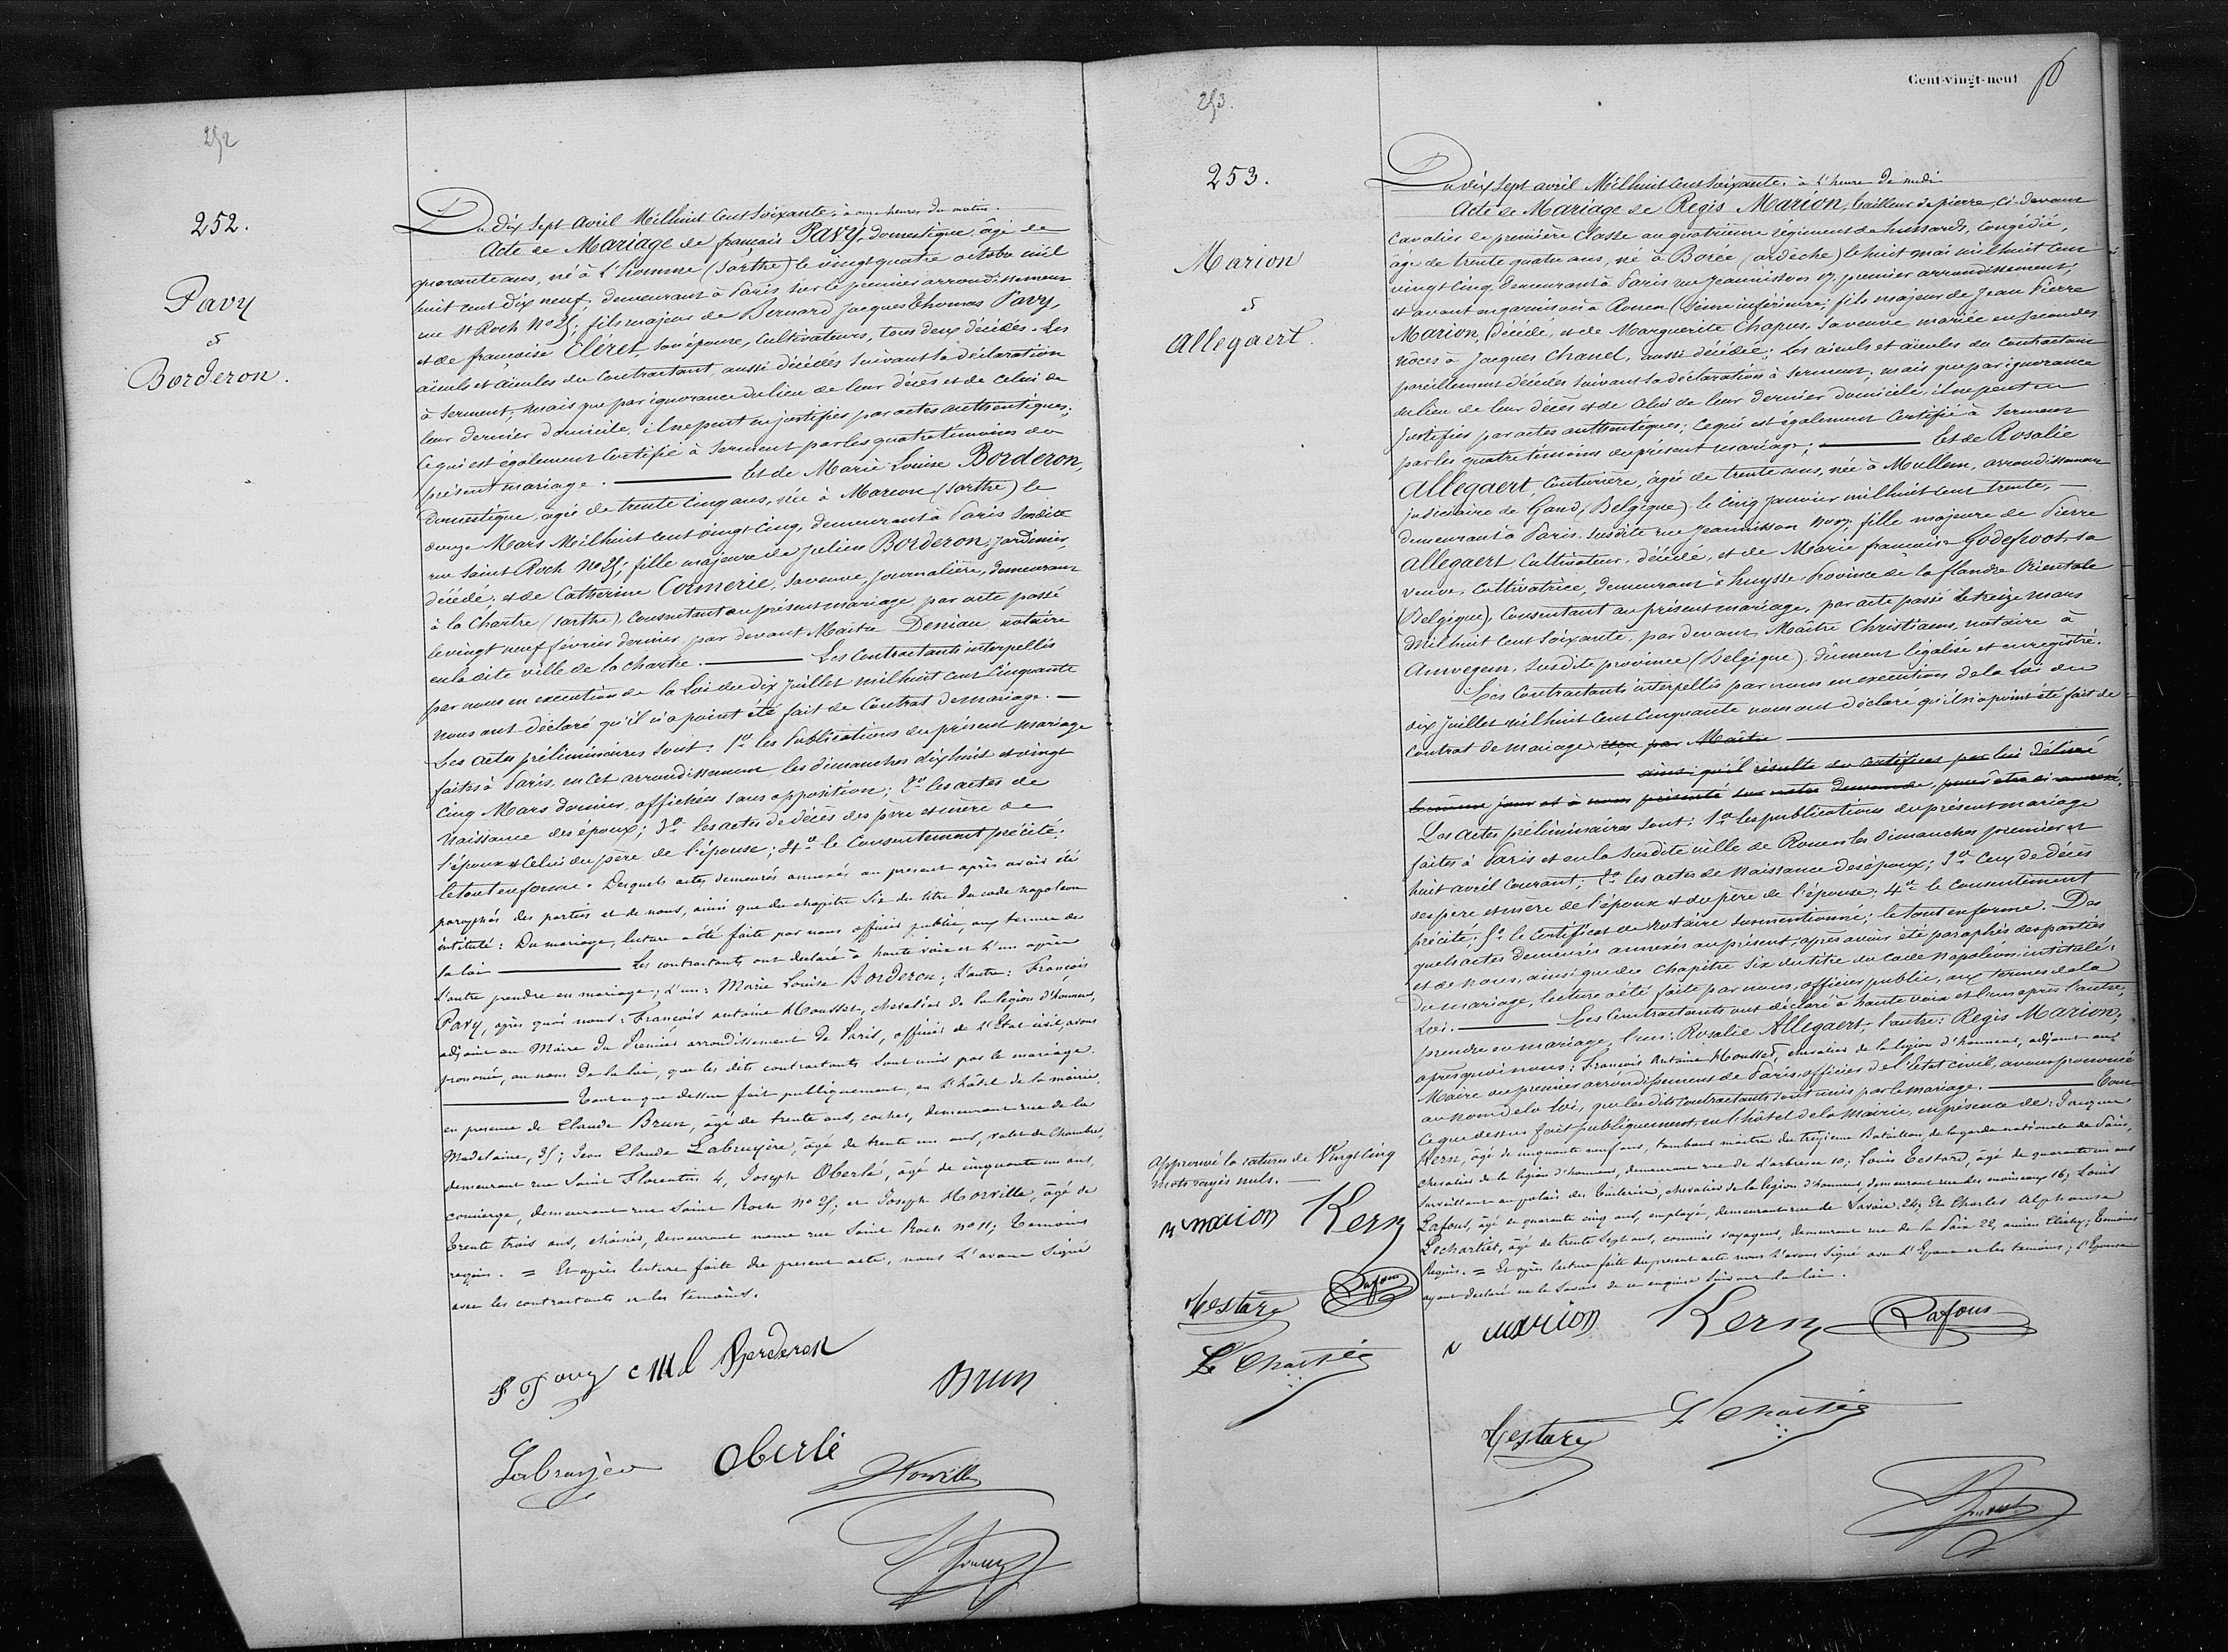 252
252.
Pavy
&
Borderon.
Du dix sept avril Mil huit Cent Soixante, à onze heures du matin.
Acte de Mariage de françois Pavy, domestique, âgé de
quarante ans, né à l'homme (Sarthe) le vingt quatre octobre mil
huit cent dix neuf, demeurant à Paris sur le premier arrondissement
rue St Roch No 25; fils majeur de Bernard Jacques Thomas Pavy,
et de françoise Cleret, son épouse, Cultivateurs, tous deux décédés. Les
aïeuls et aïeules du Contractant, aussi décédés suivant sa déclaration
à Serment; mais que par ignorance du lieu de leur décès et de celui de
leur dernier domicile, il ne peut en justifier par actes authentiques;
ce qui est également Certifié à Serment par les quatre témoins du
présent mariage. Et de Marie Louise Borderon,
Domestique, âgée de trente cinq ans, née à Marcon (Sarthe) le
douze Mars Mil huit cent vingt Cinq, demeurant à Paris susdite
rue Saint Roch No 25; fille majeure de Julien Borderon, Jardinier,
décédé; et de Catherine Cormerie, sa veuve, Journalière, demeurant
à la Chartre (Sarthe), Consentant au présent mariage par acte passé
le vingt neuf février dernier, par devant Maître Deniau, notaire
en la dite ville de la Chartre. Les Contractants interpellés
par nous en exécution de la Loi du dix Juillet mil huit cent Cinquante
nous ont déclaré qu'il n'a point été fait de Contrat de mariage. —
Les actes préliminaires sont: 1o les Publications du présent mariage
faites à Paris, en cet arrondissement, les dimanches dix huit et vingt
Cinq Mars dernier, affichées sans opposition; 2o les actes de
Naissance des époux; 3o les actes de décès des père et mère de
l'époux et Celui du père de l'épouse; 4o le Consentement précité;
le tout en forme. Desquels actes demeurés annexés au présent après avoir été
paraphés des parties et de nous, ainsi que du chapitre Six du titre du code napoléon
intitulé: Du mariage, lecture a été faite par nous officier public, aux termes de
la loi Les contractants ont déclaré à haute voix et l'un après
l'autre prendre en mariage, l'un: Marie Louise Borderon; l'autre: François
Pavy, après quoi nous: François antoine Housset, chevalier de la légion d'honneur,
adjoint au Maire du Premier arrondissement de Paris, officier de l'Etat civil, avons
prononcé, au nom de la loi, que les dits contractants sont unis par le mariage.
Tout ce que dessus fait publiquement, en l'hôtel de la mairie,
en presence de Claude Brun, âgé de trente ans, cocher, demeurant rue de la
Madelaine, 35; Jean Claude Labruyère, âgé de trente un ans, valet de Chambre,
demeurant rue Saint Florentin 4, Joseph Oberlé, âgé de cinquante un ans,
concierge, demeurant rue Saint Roch no 25; et Joseph Horville, âgé de
trente trois ans, demeurant meme rue Saint Roch no 11; Temoins
requis. = Et après lecture faite du present acte, nous l'avons Signé
avec les contractants et les temoins.
F Pavy M L Borderon
Brun
Labruyère Oberlé
Horville
Cent-vingt-neuf
253.
253.
Marion
&
Allegaert.
Du dix Sept avril Mil huit Cent Soixante, à l'heure de midi
Acte de Mariage de Regis Marion, tailleur de pierre, ci-devant
Cavalier de première Classe au quatrième régiment de hussards, Congédié,
âgé de trente quatre ans, né à Borée (ardèche) le huit mai mil huit cent
vingt Cinq, demeurant à Paris rue Jeannisson 17, premier arrondissement,
et avant en garnison à Rouen (Seine inférieure; fils majeur de Jean Pierre
Marion, décédé, et de Marguerite Chapus, sa veuve, mariée en secondes
nôces à Jacques Chanel, aussi décédée; Les aïeuls et aïeules du Contractant
pareillement décédés suivant sa déclaration à serment; mais que par ignorance
du lieu de leur décès et de celui de leur dernier domicile, il ne peut en
justifier par actes authentiques; Ce qui est également Certifié à Serment
par les quatre témoins du présent mariage; Et de Rosalie
Allegaert, Couturière, âgée de trente ans, née à Mullem, arrondissement
judiciaire de Gand, Belgique) le Cinq Janvier mil huit cent trente, —
demeurant à Paris, susdite rue Jeannisson No 17, fille majeure de Pierre
Allegaert Cultivateur, décédé, et de Marie françoise Godefroot, sa
veuve, Cultivatrice, demeurant à huysse Province de la flandre Orientale
(Belgique), Consentant au présent mariage, par acte passé le treize mars
Mil huit Cent Soixante, par devant Maître Christiaens, notaire à
Anvegem, susdite province (Belgique), dûment légalisé et enregistré.
Les Contractants interpellés par nous en exécution de la Loi du
dix Juillet mil huit Cent Cinquante nous ont déclaré qu'il n'a point été fait de
Contrat de mariage reçu par Maître
ainsi qu'il résulte du Certificat par lui délivré
le même jour et à nous présenté sur notre demande, pour être ci annexé.
Les actes préliminaires sont: 1o les publications du présent mariage
faites à Paris et en la susdite ville de Rouen les dimanches premier et
huit avril Courant; 2o les actes de Naissance des époux; 3o Ceux de décès
des père et mère de l'époux et du père de l'épouse; 4o le Consentement
précité; 5o le Certificat de Notaire susmentionné; le tout en forme. Des
quels actes demeurés annexés au présent, après avoir été paraphés des parties
et de nous, ainsi que du Chapitre Six du titre du Code Napoléon intitulé:
Du mariage, lecture a été faite par nous, officier public, aux termes de la
Loi. Les Contractants ont déclaré à haute voix et l'un après l'autre,
prendre en mariage, l'un: Rosalie Allegaert, l'autre: Regis Marion;
après quoi nous: François Antoine Housset, chevalier de la légion d'honneur, adjoint au
Maire du premier arrondissement de Paris, officier de l'Etat civil, avons prononcé
au nom de la loi, que les dits Contractants sont unis par le mariage. Tout
ce que dessus fait publiquement, en l'hôtel de la Mairie, en présence de: Jacques
Kern, âgé de cinquante neuf ans, tambour maitre du treizieme Bataillon de la garde nationale de Paris,
chevalier de la légion d'honneur, demeurant rue de l'arbre sec 10; Louis Testard, âgé de quarante un ans
surveillant au palais des Tuileries, chevalier de la légion d'honneur, demeurant rue des moineaux 16; Louis
Lafous, âgé de quarante cinq ans, employé, demeurant rue de Savoie, 24; Et Charles Alphonse
Lechartier, âgé de trente Sept ans, commis voyageur, demeurant rue de la Paix 22, ancien Clichy; Temoins
Requis. = Et après lecture faite du present acte nous l'avons Signé avec l'Epoux et les temoins; l'Epouse
ayant declaré ne le savoir de ce enquise suivant la loi.
Approuvé la rature de Vingt Cinq
mots rayés nuls. —
R marion Kern
testard Lafous
Le Chartier
r marion Kern Lafous
testard Le Chartier